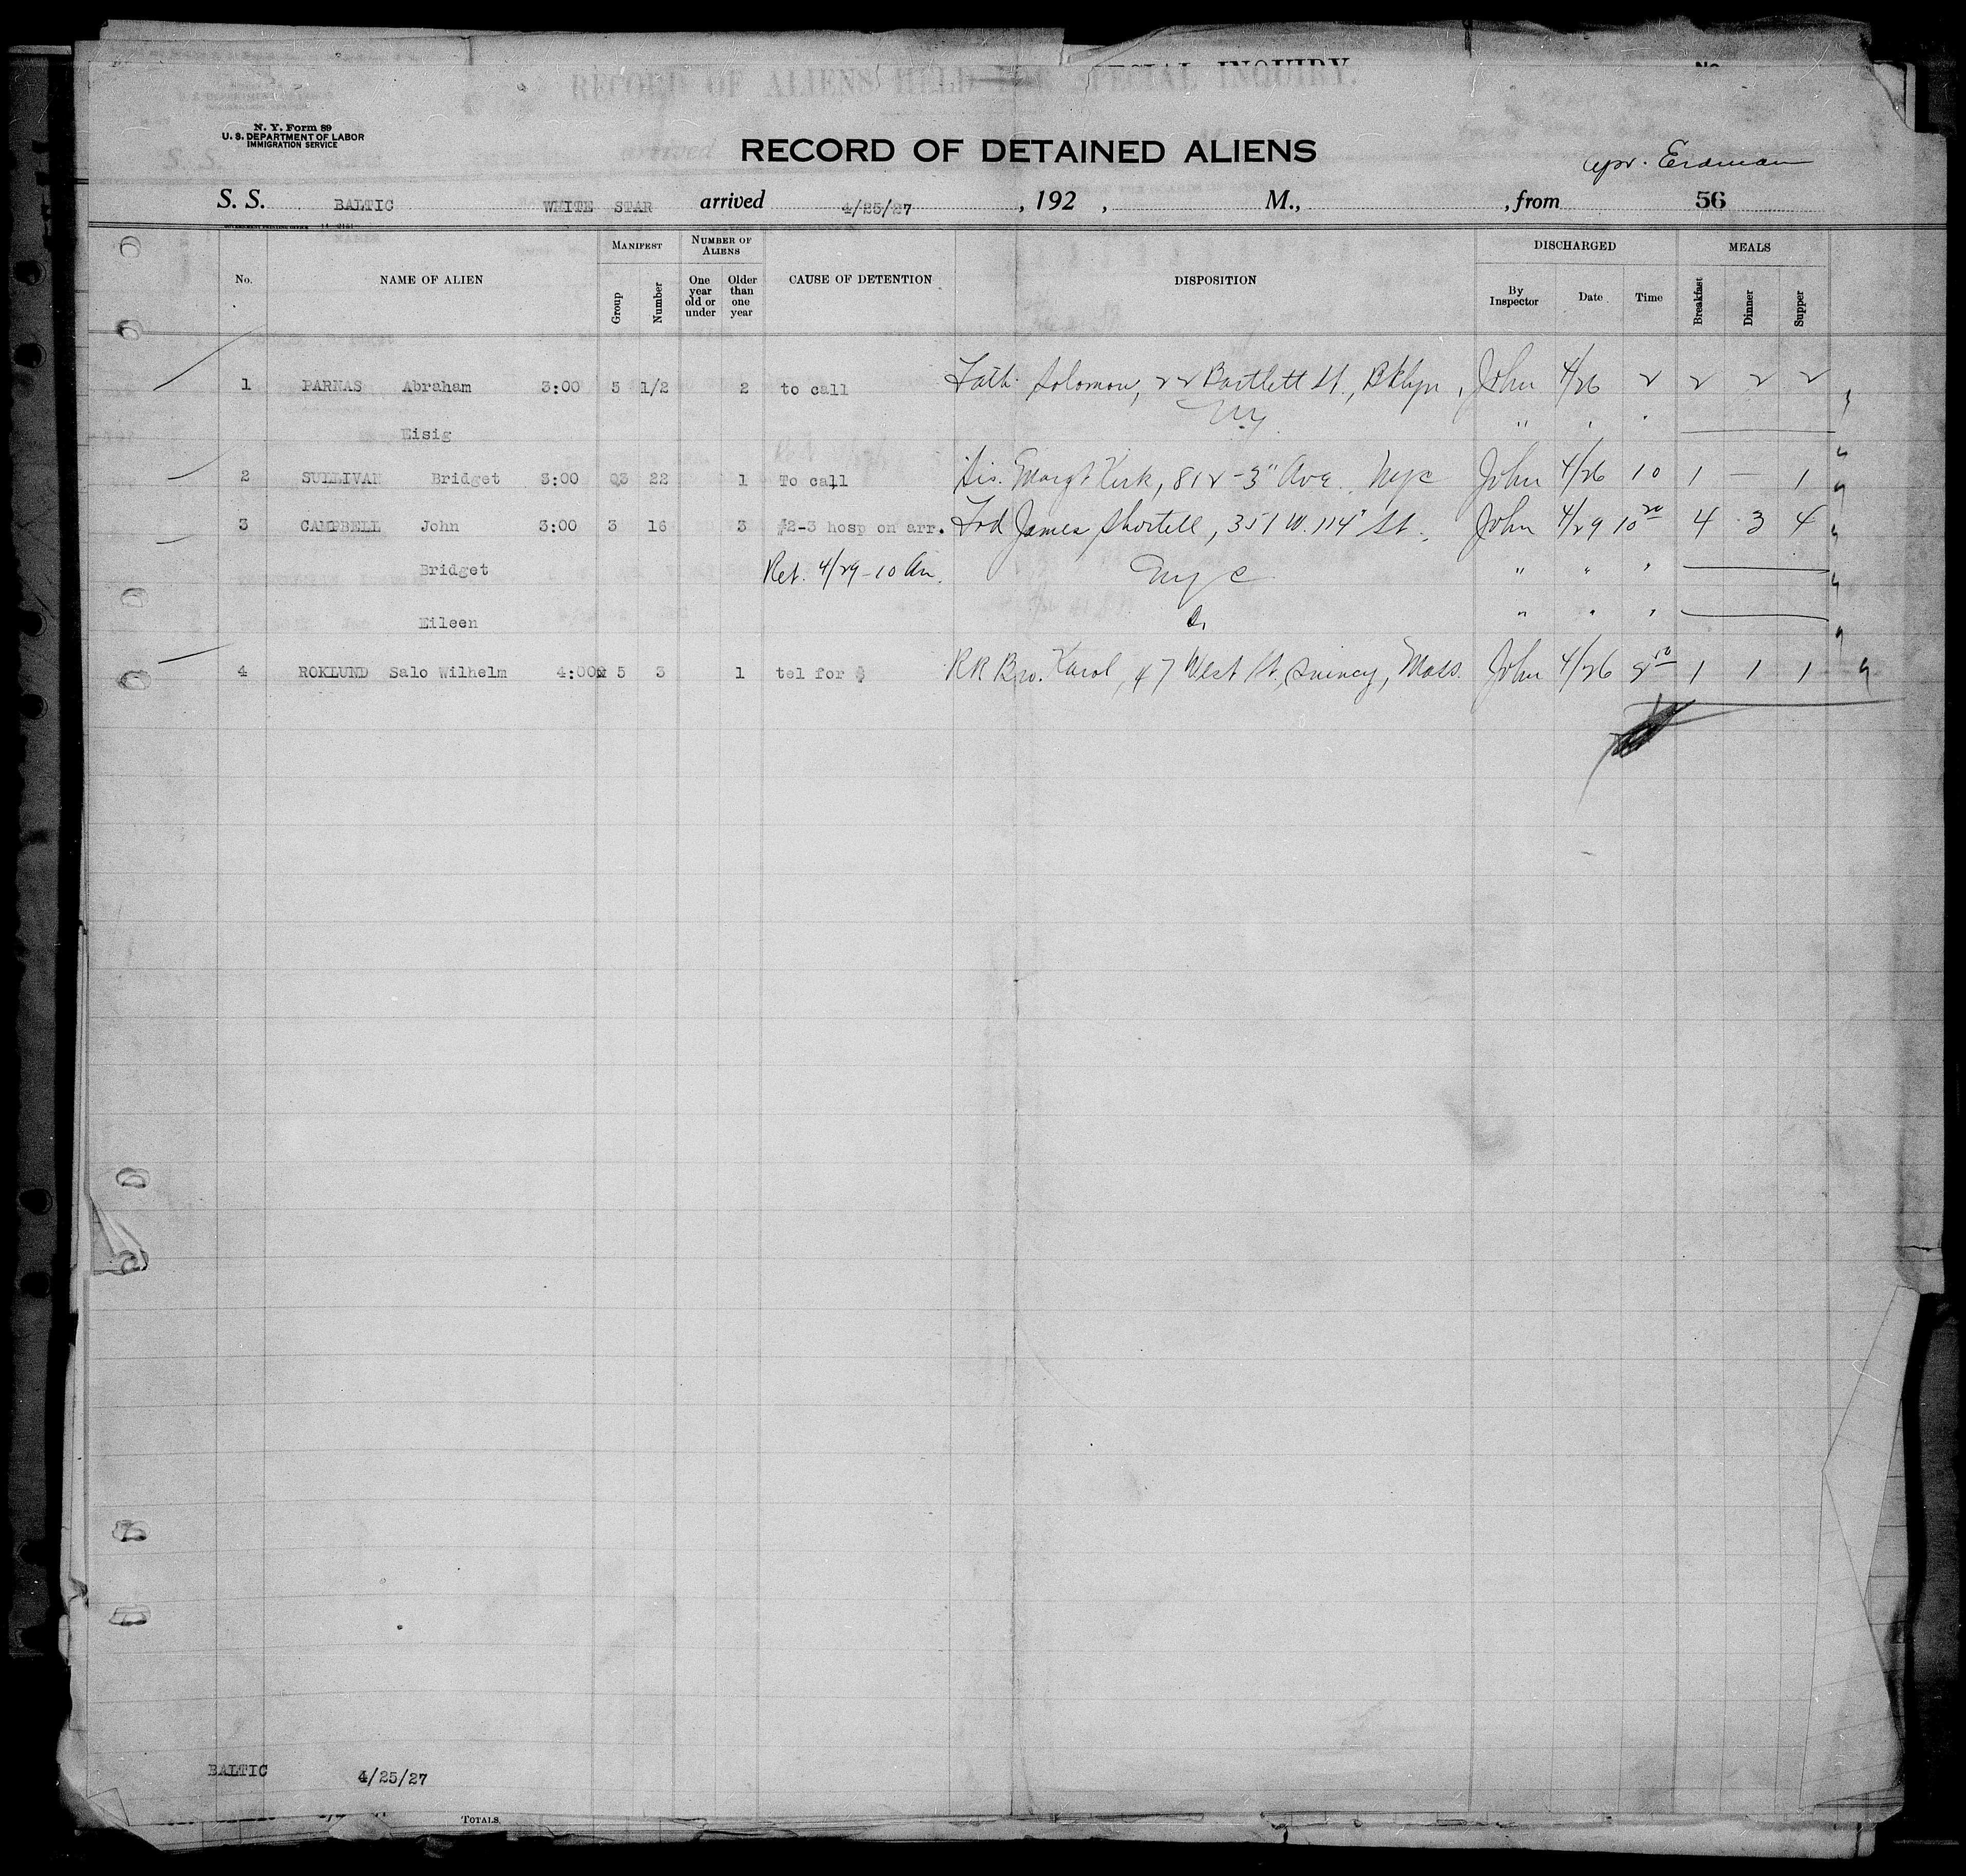 RECORD OF ALIENS HELD FOR SPECIAL INQUIRY.
N. Y. Form 89
U. S. DEPARTMENT OF LABOR
IMMIGRATION SERVICE
RECORD OF DETAINED ALIENS
Erdman
S. S. BALTIC WHITE STAR arrived 4/25/27, 192 , M., , from 56
MANIFEST NUMBER OF ALIENS DISCHARGED MEALS
No. NAME OF ALIEN Group Number One year old or under Older than one year CAUSE OF DETENTION DISPOSITION By Inspector Date Time Breakfast Dinner Supper
1 PARNAS Abraham 3:00 5 1/2 2 to call Fath. Solomon, 22 Bartlett St., Bklyn, John 4/26 2 2 2 2
Eisig NY " " "
2 SULLIVAN Bridget 3:00 Q3 22 1 To call Sis. Margt Kirk, 812-3" Ave. NYC John 4/26 10 1 — 1
3 CAMPBELL John 3:00 3 16 3 #2-3 hosp on arr. Frd James Shortell, 351 W. 114" St., John 4/29 10 20 4 3 4
Bridget Ret. 4/29-10 Am. NYC " " "
Eileen " " "
4 ROKLUND Salo Wilhelm 4:00 5 3 1 tel for $ RR Bro. Karol, 47 West St., Quincy, Mass. John 4/26 2 10 1 1 1
BALTIC 4/25/27
TOTALS